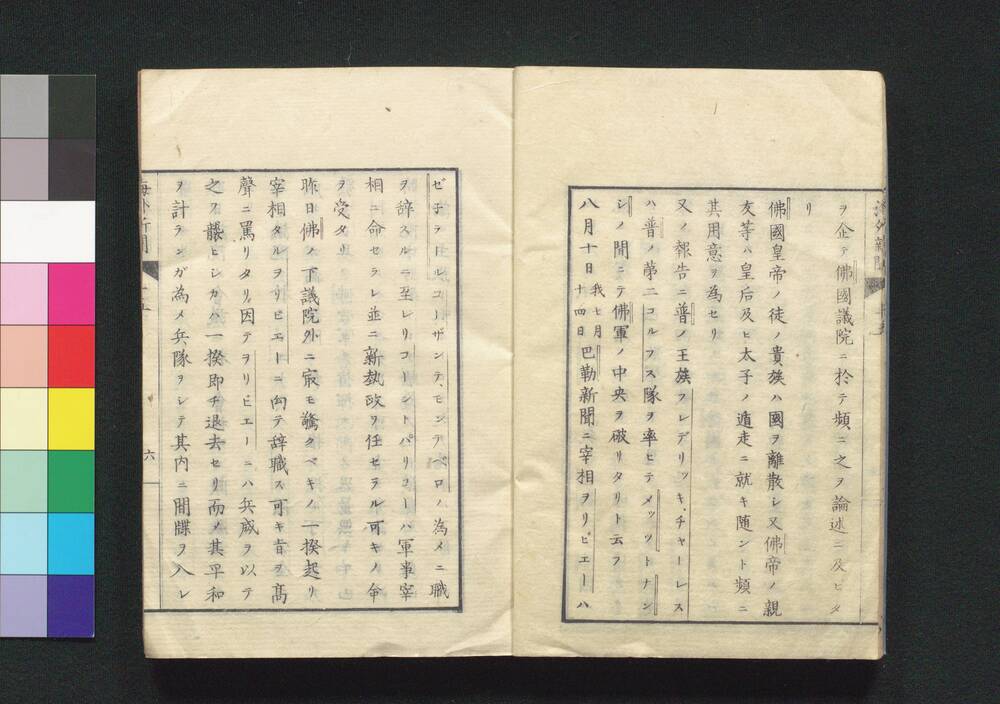 ヲ企テ佛國議院ニ於テ頻ニ之ヲ論述ニ及ビタ
リ
佛國皇帝ノ徒ノ貴族ハ國ヲ離散シ又佛帝ノ親
友等ハ皇后及ヒ太子ノ遁走ニ就キ随ント頻ニ
其用意ヲ為セリ
又ノ報告ニ普ノ王族フレデリッキ、チャーレス
ハ普ノ第二コルフス隊ヲ率ヒテメッツトナン
シノ間ニテ佛軍ノ中央ヲ破リタリト云フ
八月十日我七月十四日巴勒新聞ニ宰相ヲリビエーハ
ゼ子ラールコーザンテ、モンデベロノ為メニ職
ヲ辞スルニ至レリコーントパリコーハ軍事宰
相ニ命セラレ並ニ新執政ヲ任セラル可キノ命
ヲ受タリ
昨日佛ノ下議院外ニ㝡モ驚クベキノ一揆起リ
宰相タルヲリビエーニ向テ辞職ス可キ旨ヲ高
聲ニ罵リタリ因テヲリビエーニハ兵威ヲ以テ
之ヲ䮾ヒシカハ一揆即チ退去セリ而ノ其平和
ヲ計テンガ為メ兵隊ヲシテ其内ニ間牒ヲ入レ
海外新聞
六